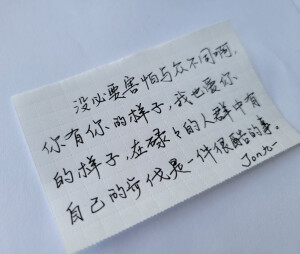 没必要害怕与众不同啊.
你有你的样子,我也爱你
的样子,在碌々的人群中有
自己的步伐是一件很酷的事.